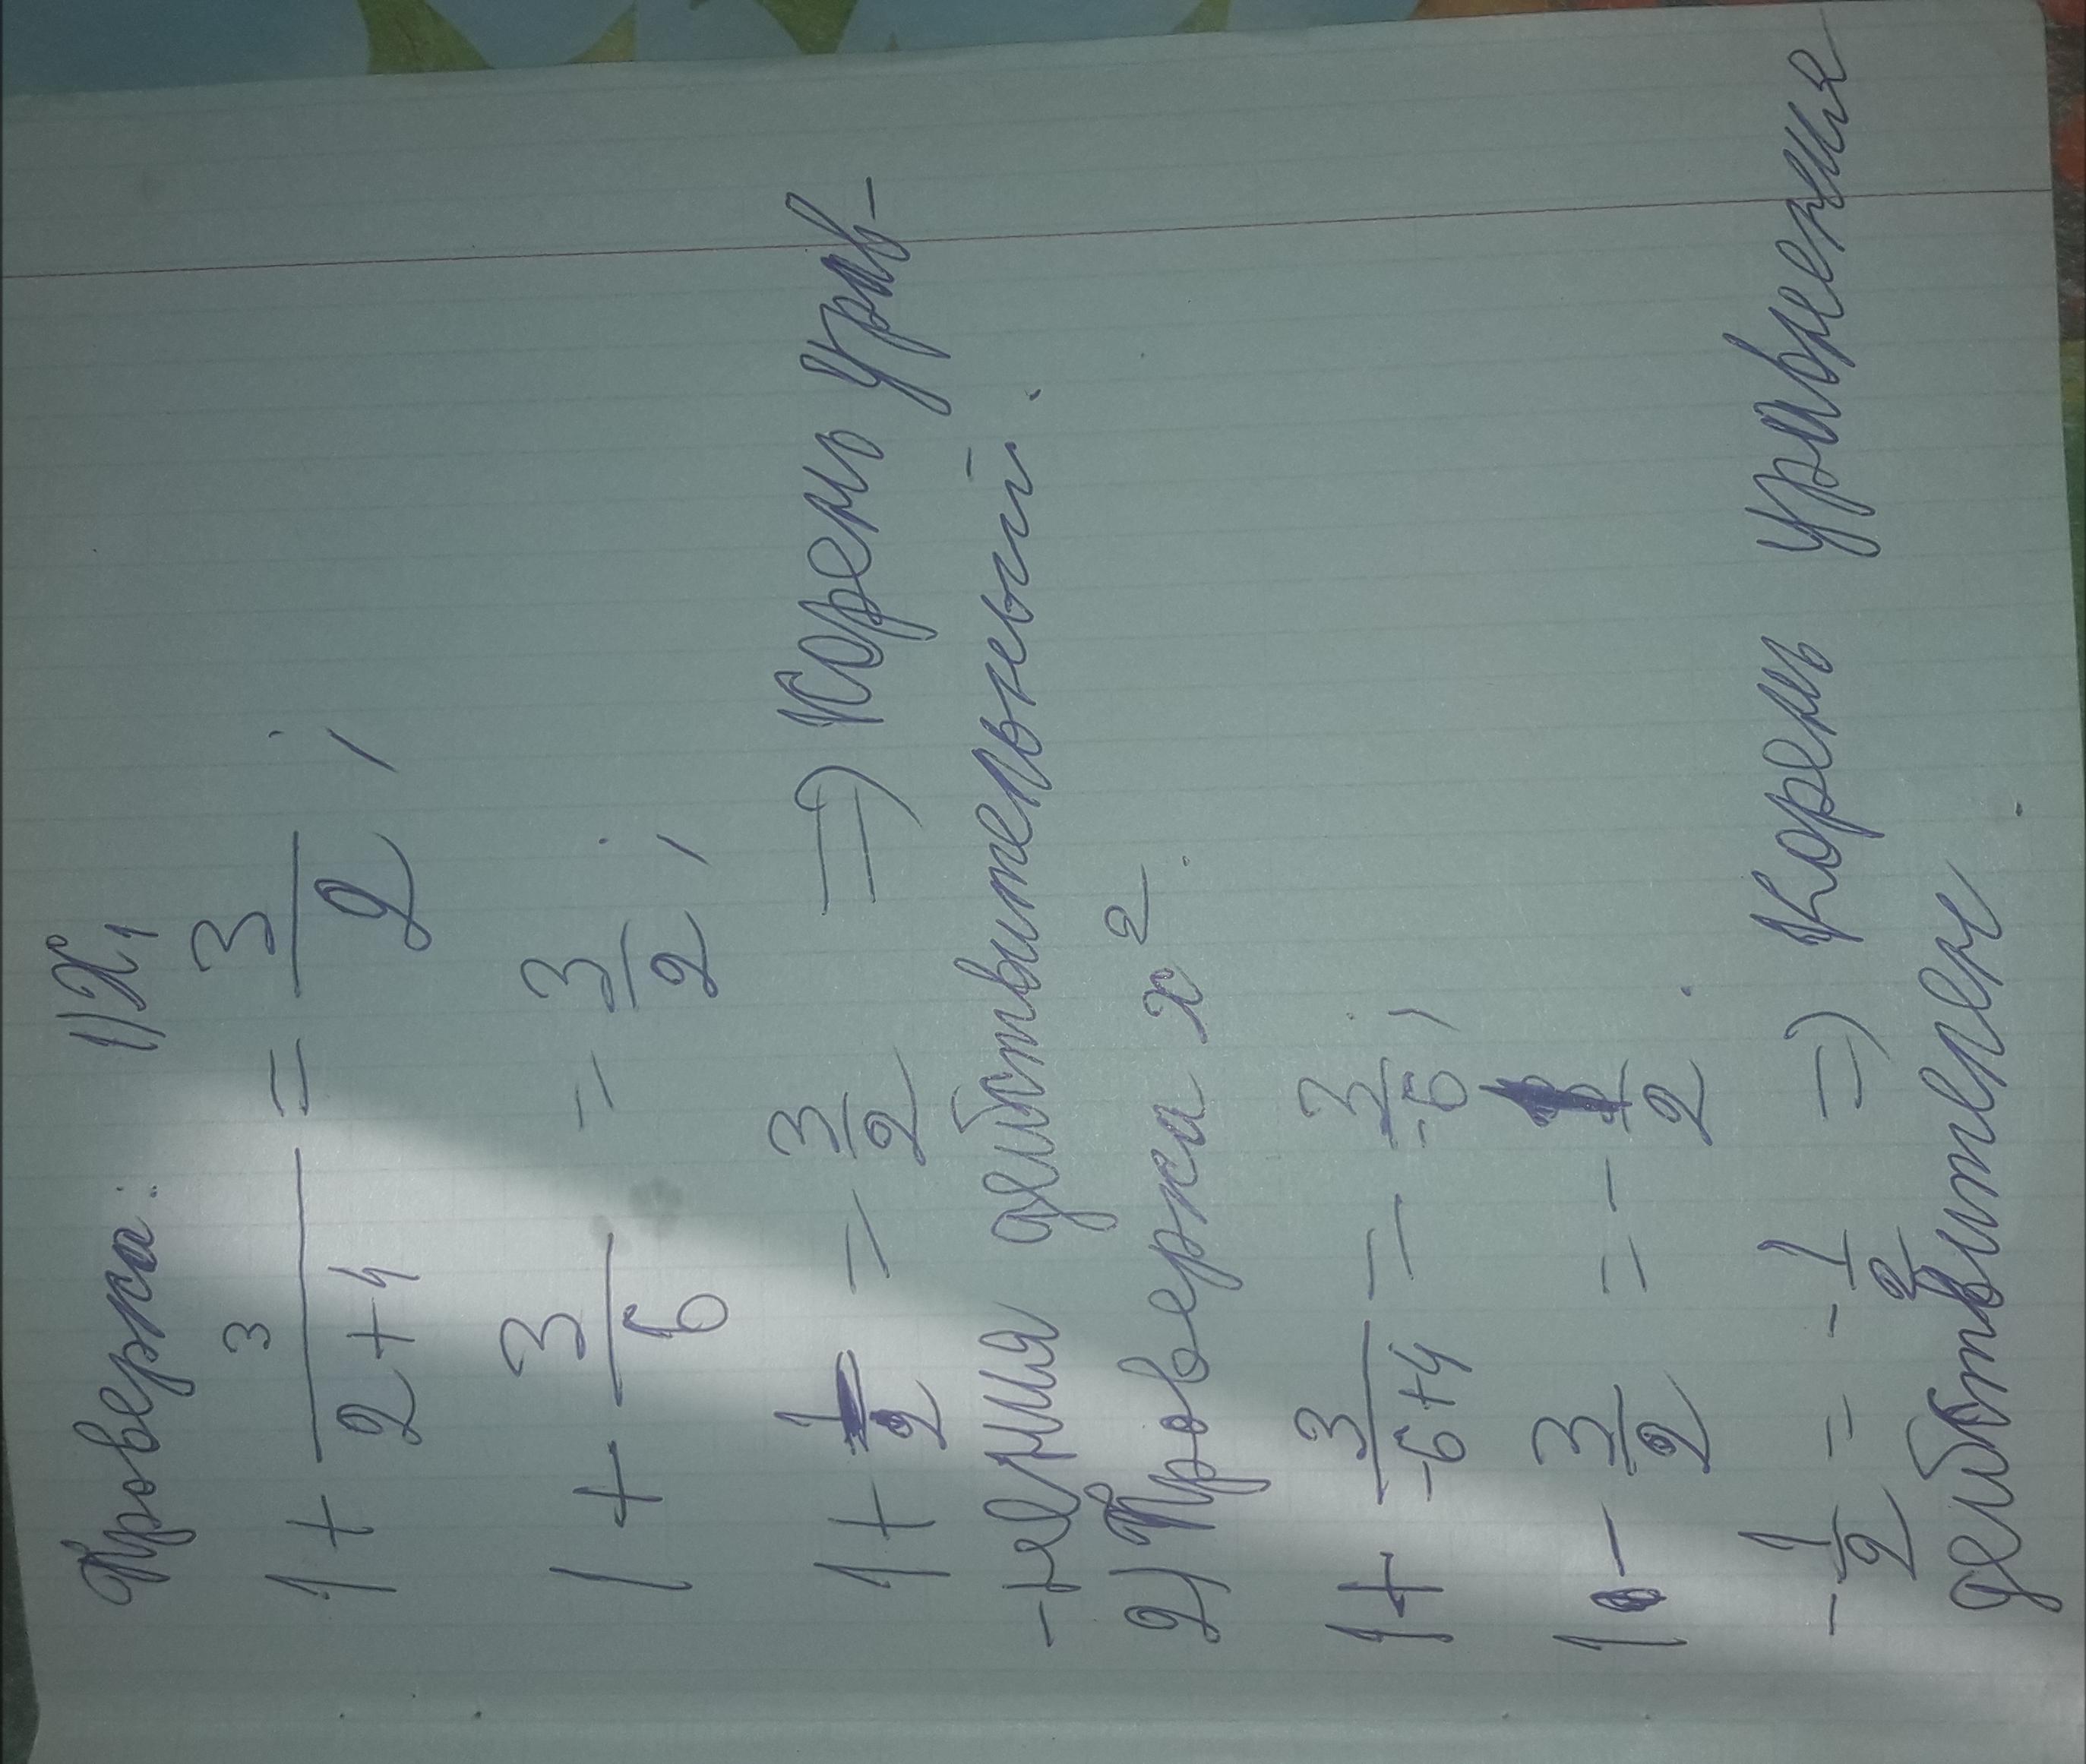 Проверка: 1) x₁
1 + 3/(2+4) = 3/2 ;
1 + 3/6 = 3/2 ;
1 + 1/2 = 3/2 => Корень урав-
-нения действительный.
2) Проверка x²:
1 + 3/(-6+4) = 3/-6 ;
1 - 3/2 = - /2 .
- 1/2 = - 1/2 => Корень уравнения
действителен.